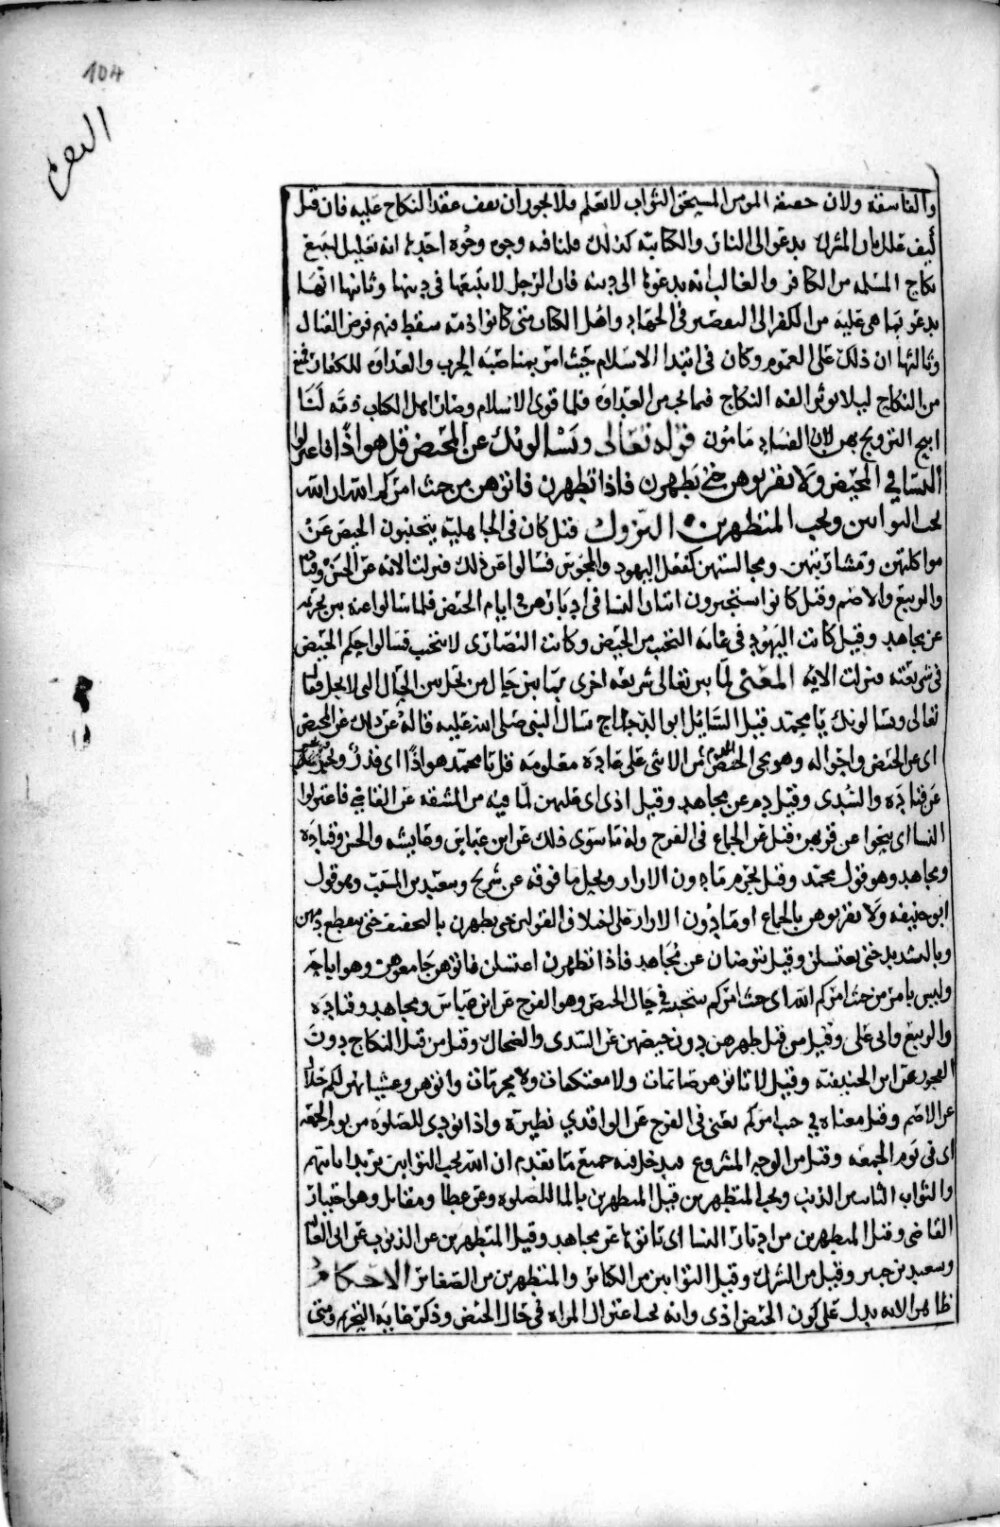 104
البقرة
والفاسقة ولان حصة المومن المستحق الثواب لا تعلم فلا يجوز ان يقف عقد النكاح عليه فان قيل
كيف علل بان المشرك يدعو الى النار والكتابية كذلك قلنا فيه وجوه احدها انه تعليل لجميع
نكاح المسلمة من الكافر والغالب انه يدعوها الى دينه فان الرجل لا يتبعها في دينها وثانيها انها
يدعو بما هي عليه من الكفر الى التقصير في الجهاد واهل الكتاب متى كانوا ذمة سقط فيهم فرض القتال
وثالثها ان ذلك على العموم وكان في ابتدا الاسلام حيث امر بمناصبة الحرب والعداوة للكفار فمنع
من النكاح ليلا يوثر الفة النكاح فيما يجب من العداوة فلما قوى الاسلام وصار اهل الكتاب ذمة لنا
ابيح التزويج بهن لان الفساد مامون قوله تعالى ويسالونك عن المحيض قل هو اذا فاعتزلوا
النسا في المحيض ولا تقربوهن حتى يطهرن فاذا تطهرن فاتوهن من حيث امركم الله ان الله
يحب التوابين ويحب المتطهرين النزول قيل كان في الجاهلية يتجنبون الحيض عن
مواكلتهن ومشاربتهن ومجالستهن كفعل اليهود والمجوس فسالوا عن ذلك فنزلت الاية عن الحسن وقتادة
والربيع والاصم وقيل كانوا يستجيزون اتيان النسا في ادبارهن في ايام الحيض فلما سالوا عنه بين تحريمه
عن مجاهد وقيل كانت اليهود في غاية التجنب من الحيض وكانت النصارى لا تتجنب فسالوا حكم الحيض
في شريعته فنزلت الاية المعنى لما بين تعالى شريعة اخرى بما بين حال من تحل من الحال التي لا يحل فقال
تعالى ويسالونك يا محمد قيل السايل ابو الدحداح سال النبي صلى الله عليه وآله عن ذلك عن المحيض
اى عن الحيض واحواله وهو مجي الحيض من الانثى على عادة معلومة قل يا محمد هو اذا اى قذر ونجس
عن قتادة والسدى وقيل دم عن مجاهد وقيل اذى اى عليهن لما فيه من المشقة عن القاضي فاعتزلوا
النسا اى تنحوا عن قربهن قيل عن الجماع في الفرج وله ما سوى ذلك عن ابن عباس وعايشة والحسن وقتادة
ومجاهد وهو قول محمد وقيل يحرم ما دون الازار ويحل ما فوقه عن شريح وسعيد بن المسيب وهو قول
ابي حنيفة ولا تقربوهن بالجماع او ما دون الازار على خلاف القولين حتى يطهرن بالتخفيف حتى ينقطع دمهن
وبالتشديد حتى يغتسلن وقيل يتوضان عن مجاهد فاذا تطهرن اغتسلن فاتوهن جامعوهن وهو اباحة
وليس بامر من حيث امركم الله اى حيث امركم بتجنبه في حال الحيض وهو الفرج عن ابن عباس ومجاهد وقتادة
والربيع وابي علي وقيل من قبل طهرهن دون حيضهن عن السدى والضحاك وقيل من قبل النكاح دون
الفجور عن ابن الحنيفية وقيل لا تاتوهن صايمات ولا معتكفات ولا محرمات واتوهن وغشيانهن لكم حلال
عن الاصم وقيل معناه في حيث امركم يعني في الفرج عن الواقدي نظيره واذا نودى للصلوة من يوم الجمعة
اى في يوم الجمعة وقيل من الوجه المشروع فيدخل فيه جميع ما تقدم ان الله يحب التوابين يريد اثابتهم
والثواب التايب من الذنب ويحب المتطهرين قيل المتطهرين بالما للصلوة وعن عطا ومقاتل وهو اختيار
القاضي وقيل المتطهرين من ادبار النسا اى ياتوها عن مجاهد وقيل المتطهرين من الذنوب عن ابي العالية
وسعيد بن جبير وقيل من الشرك وقيل التوابين من الكبائر والمتطهرين من الصغائر الاحكام
ظاهر الاية يدل على كون الحيض اذى وانه يجب اعتزال المراة في حال الحيض وذكر غاية التحريم ومتى